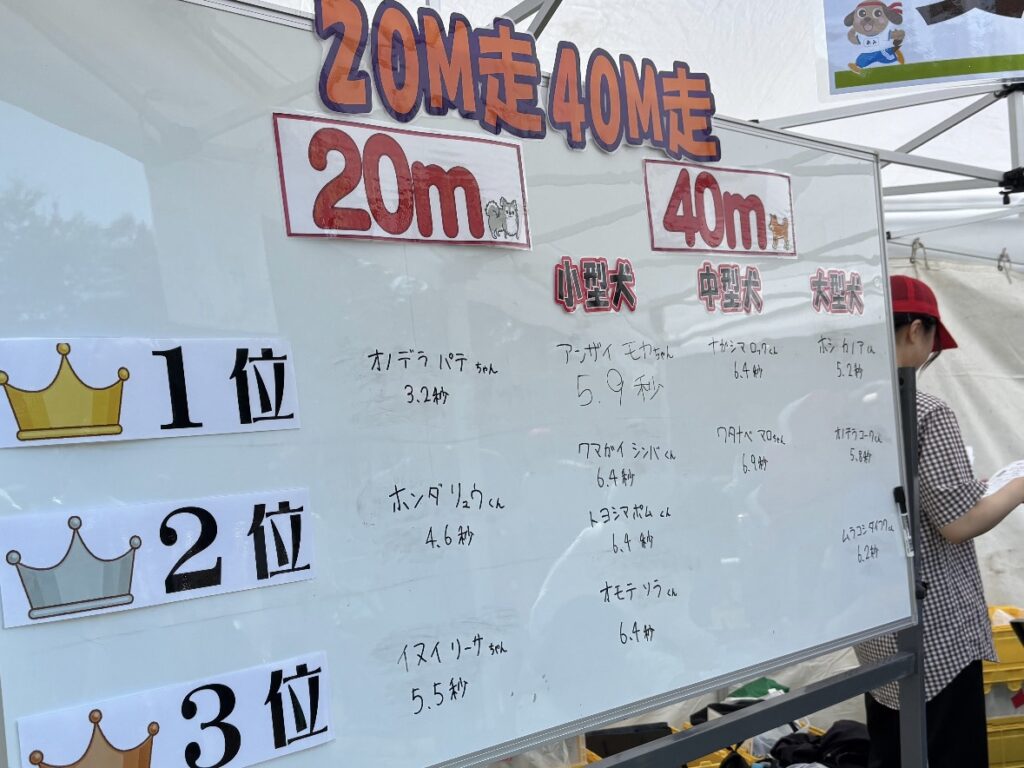 20M走 40M走
20m
40m
小型犬
中型犬
大型犬
1位
オノデラ パテちゃん
3.2秒
アンザイ モカちゃん
5.9秒
ナガシマ ロックくん
6.4秒
ホシ カノアくん
5.2秒
2位
ホンダ リュウくん
4.6秒
クマガイ シンバくん
6.4秒
トヨシマ ポムくん
6.4秒
オモテ ソラくん
6.4秒
ワタナベ マロちゃん
6.9秒
オノデラ コークくん
5.8秒
3位
イヌイ リーサちゃん
5.5秒
ムラコシ
6.2秒